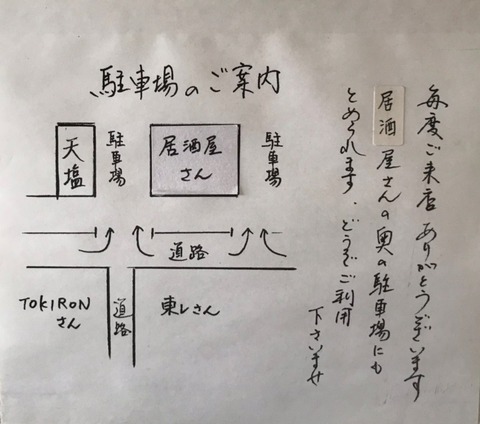 駐車場のご案内
毎度ご来店ありがとうございます
居酒屋さんの奥の駐車場にも
とめられます、どうぞご利用
下さいませ
天塩
駐車場
居酒屋
さん
駐車場
道路
TOKIRON
さん
道路
東レさん